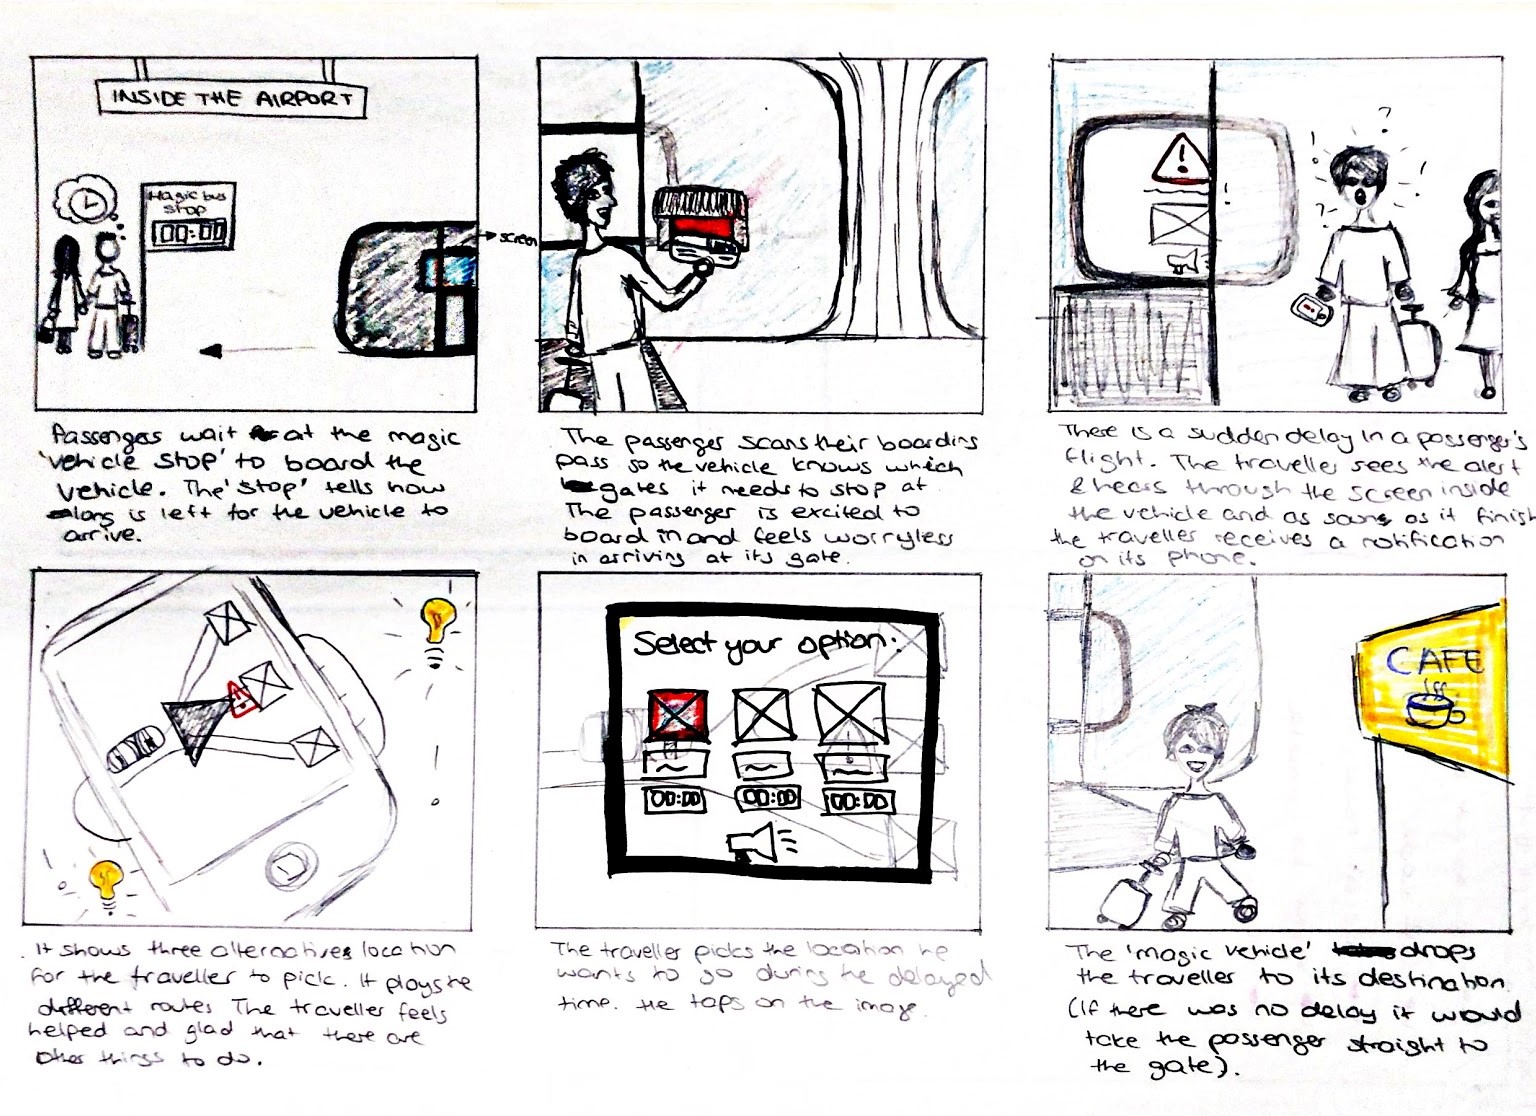 INSIDE THE AIRPORT
Magic bus
stop
00:00
screen
Passengers wait at the magic
'vehicle stop' to board the
vehicle. The 'stop' tells how
long is left for the vehicle to
arrive.
The passenger scans their boarding
pass so the vehicle knows which
gates it needs to stop at.
The passenger is excited to
board in and feels worryless
in arriving at its gate.
!
? ! ! ?
There is a sudden delay in a passenger's
flight. The traveller sees the alert
& hears through the screen inside
the vehicle and as soon as it finish
the traveller receives a notification
on its phone.
!
It shows three alternatives location
for the traveller to pick. It plays the
different routes The traveller feels
helped and glad that there are
other things to do.
Select your option:
00:00 00:00 00:00
The traveller picks the location he
wants to go during the delayed
time. He taps on the image.
CAFE
The 'magic vehicle' drops
the traveller to its destination.
(If there was no delay it would
take the passenger straight to
the gate).